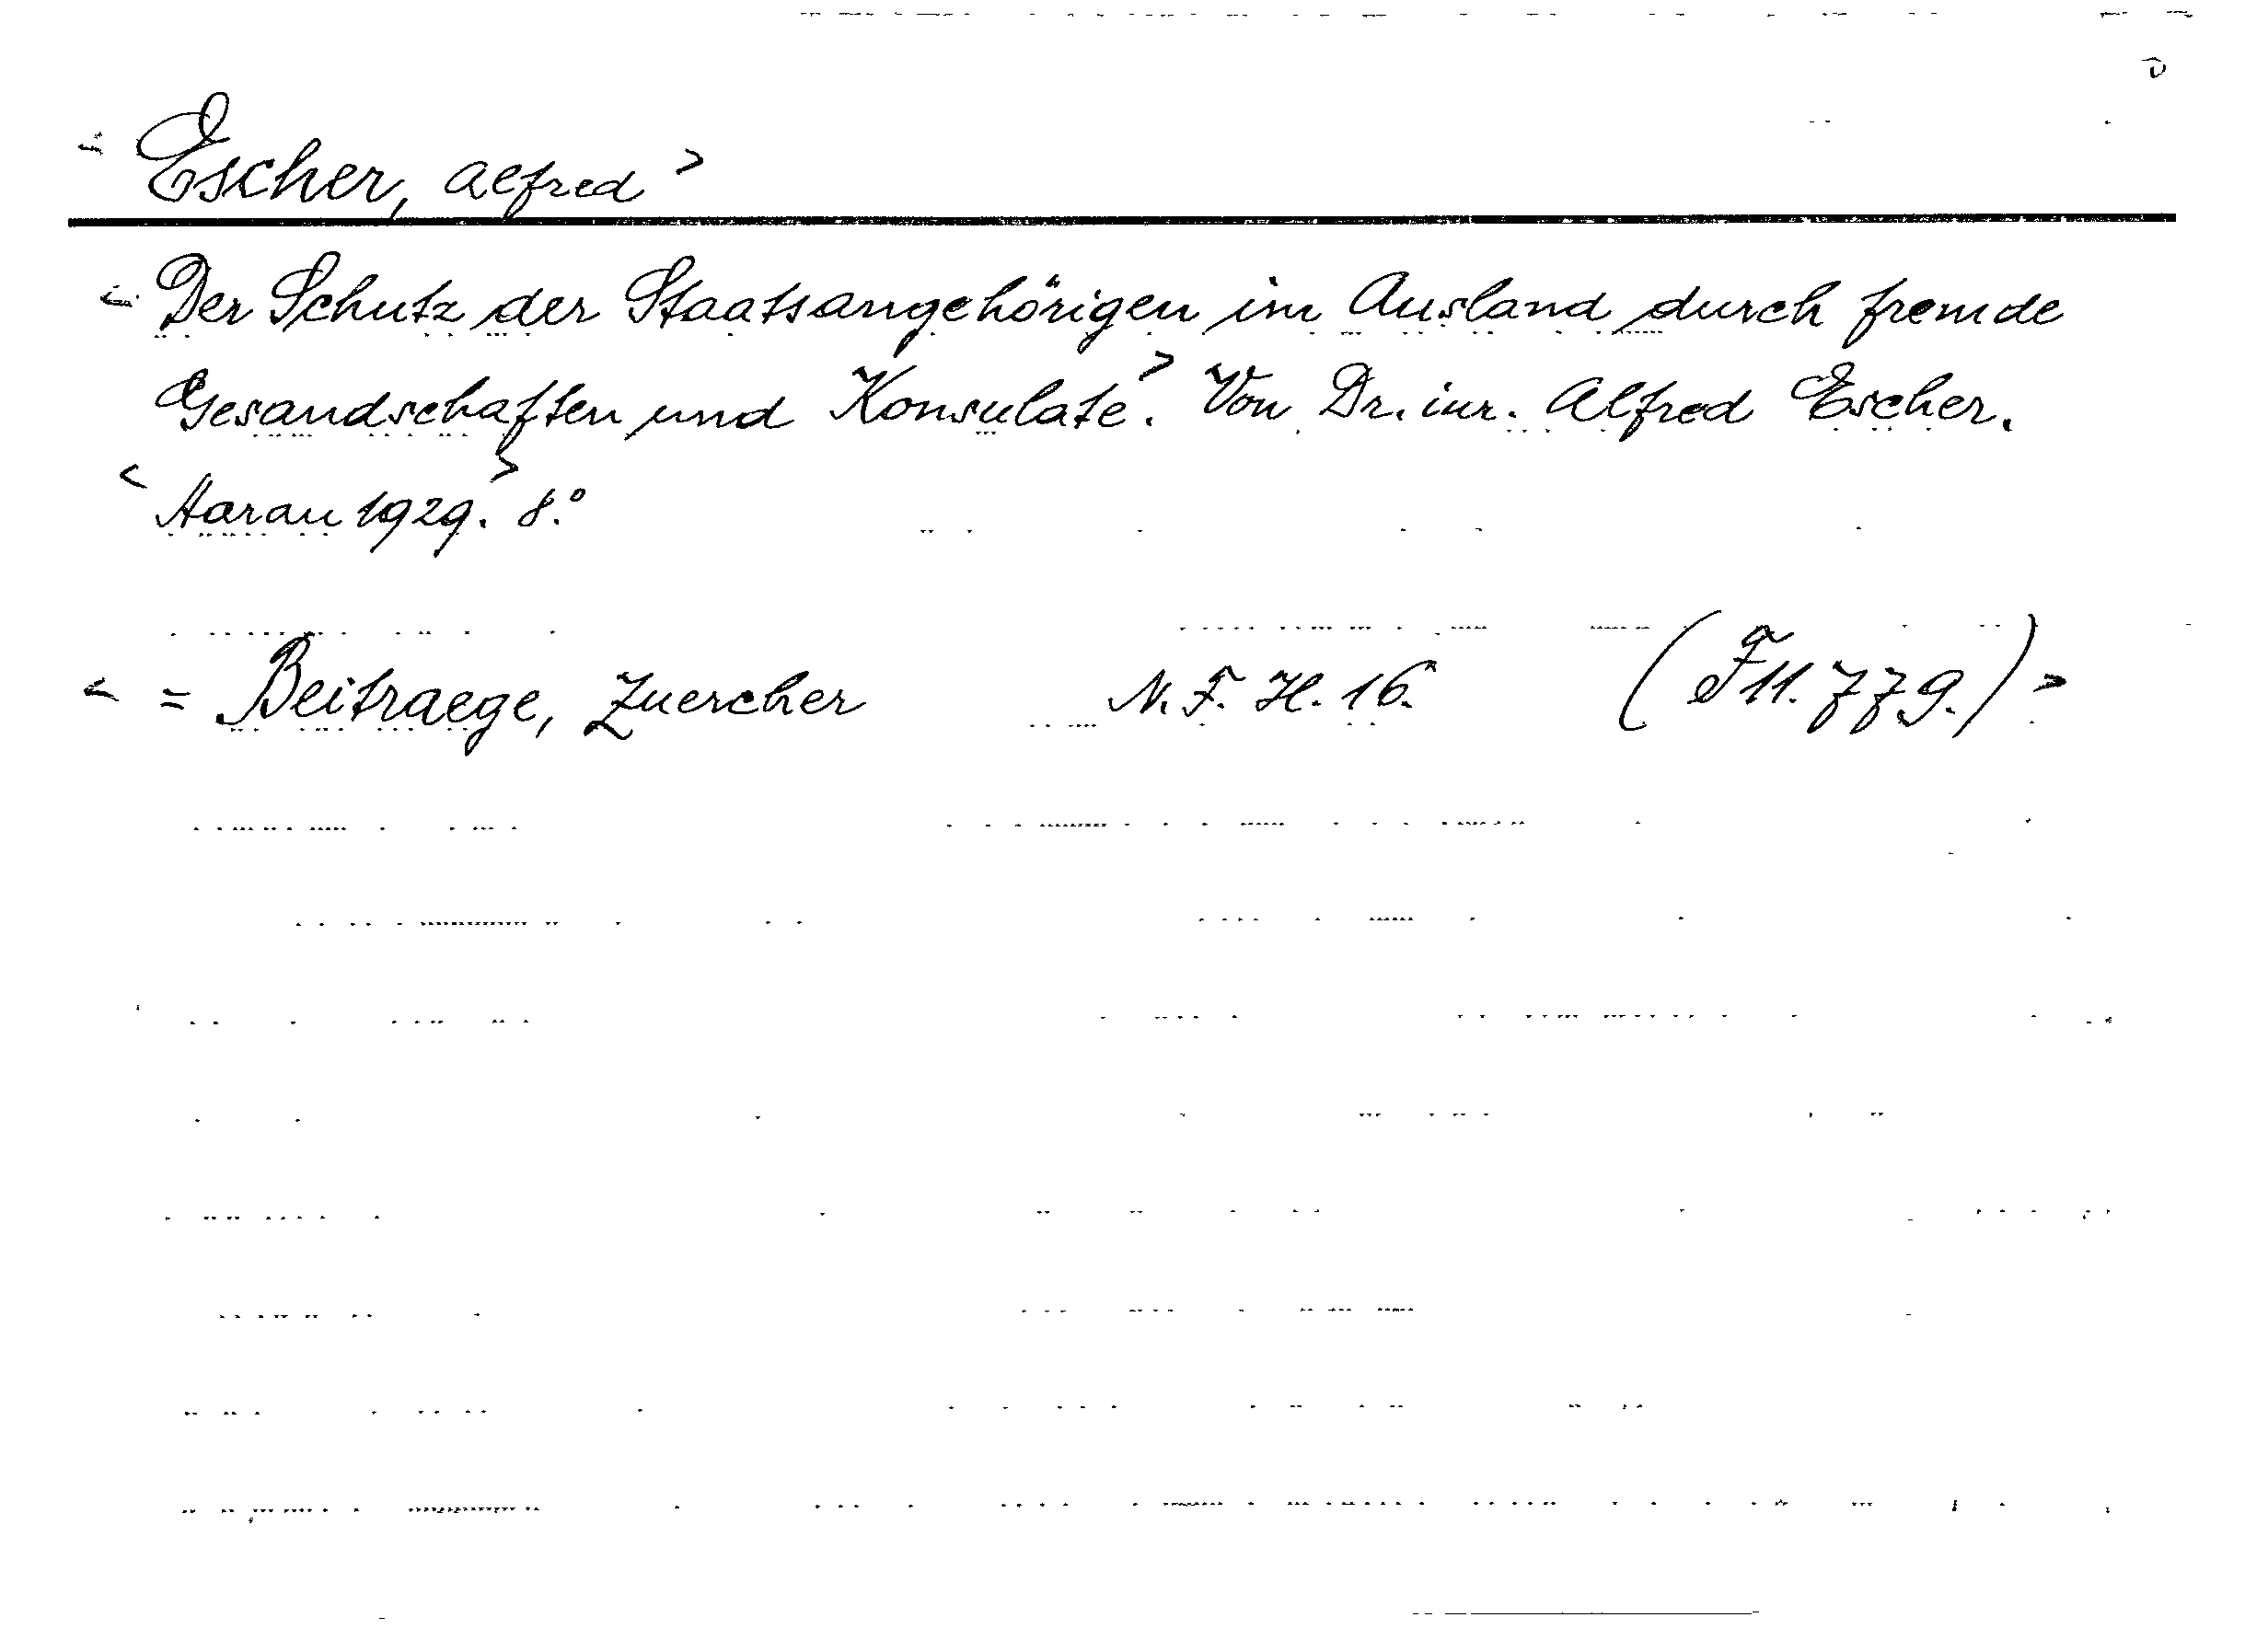 < Escher, Alfred >
< Der Schutz der Staatsangehörigen im Ausland durch fremde
Gesandschaften und Konsulate >. Von Dr. iur. Alfred Escher.
< Aarau 1929. > 8.°
< = Beitraege, Zuercher N. F. H. 16. (F 11. 779.) >